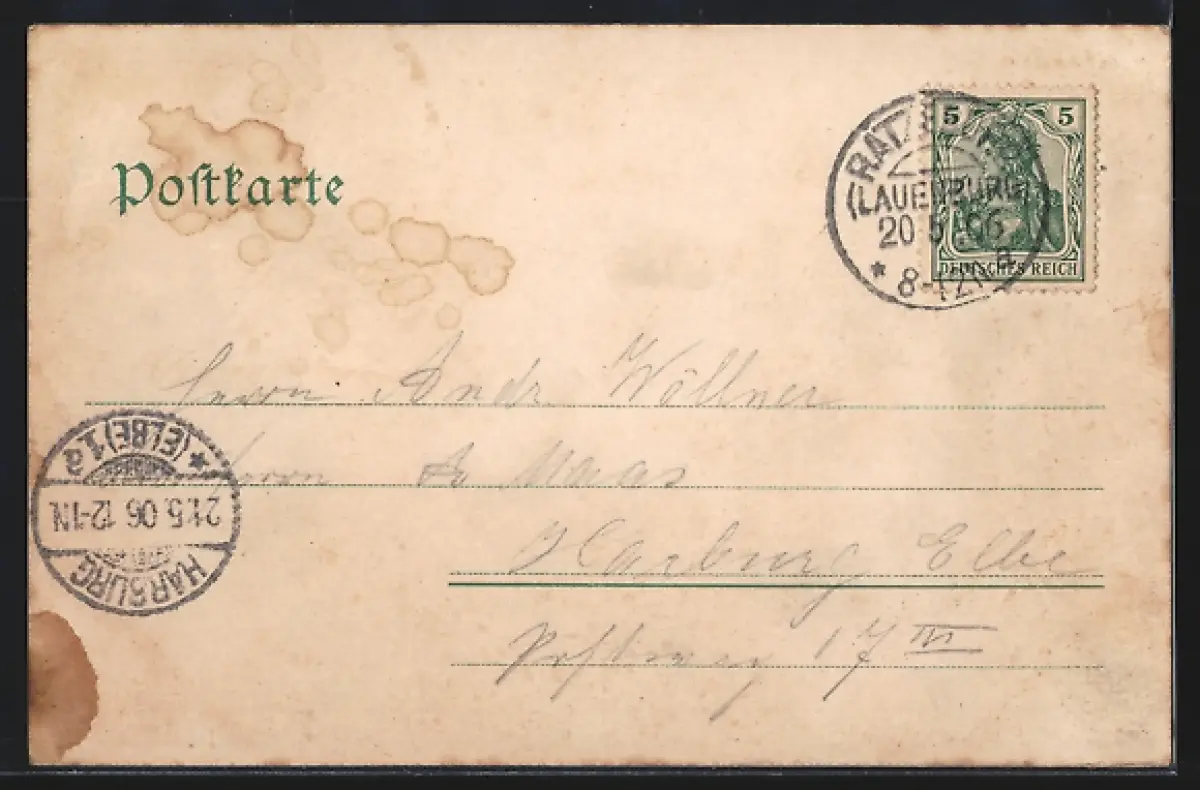 Postkarte
5 5
DEUTSCHES REICH
(LAUENBURG)
20 5 06
* 8-12N a
Herrn Andr Wöllner
Herrn Maas
Harburg Elbe
17 III
HARBURG
21.5.06 12-1N
* (ELBE) 1 a